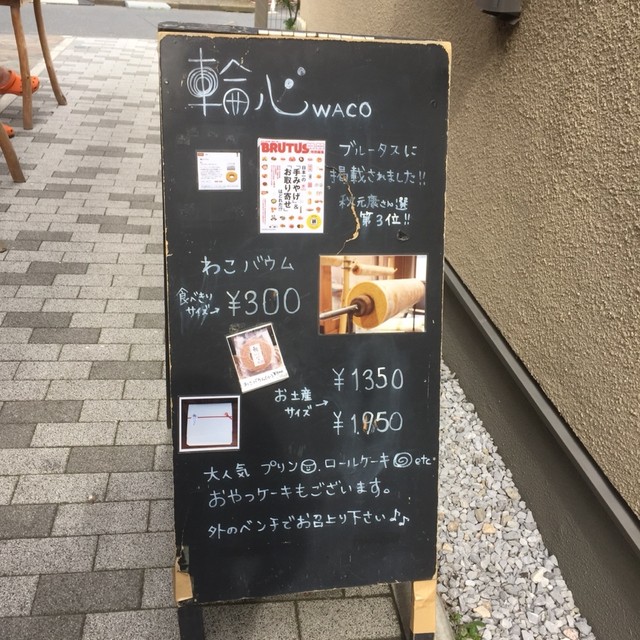 輪心 WACO
BRUTUS
日本一の
「手みやげ」&
「お取り寄せ
ブルータスに
掲載されました!!
秋元康さん選
第3位!!
わこバウム
食べきり
サイズ→ ¥300
¥1350
お土産
サイズ→
¥1,950
大人気 プリン、ロールケーキ etc.
おやつケーキもございます。
外のベンチでお召上り下さい♪♪